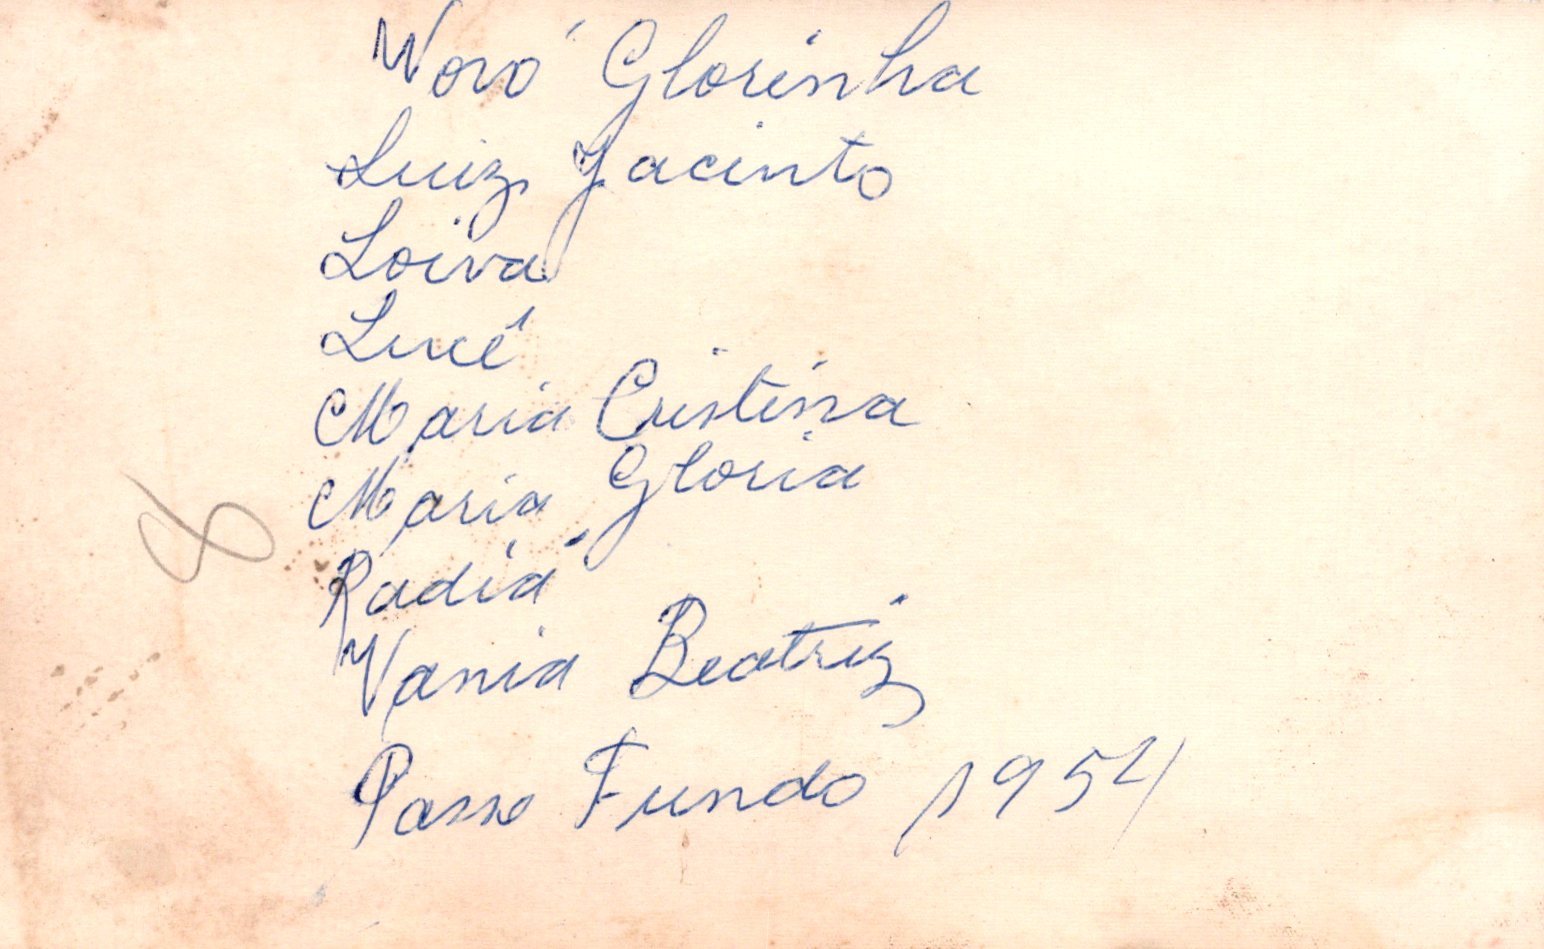 Vovó Glorinha
Luiz Jacinto
Loiva
Lucê
Maria Cristina
Maria Gloria
Radiá
Vania Beatriz
8
Passo Fundo 1954